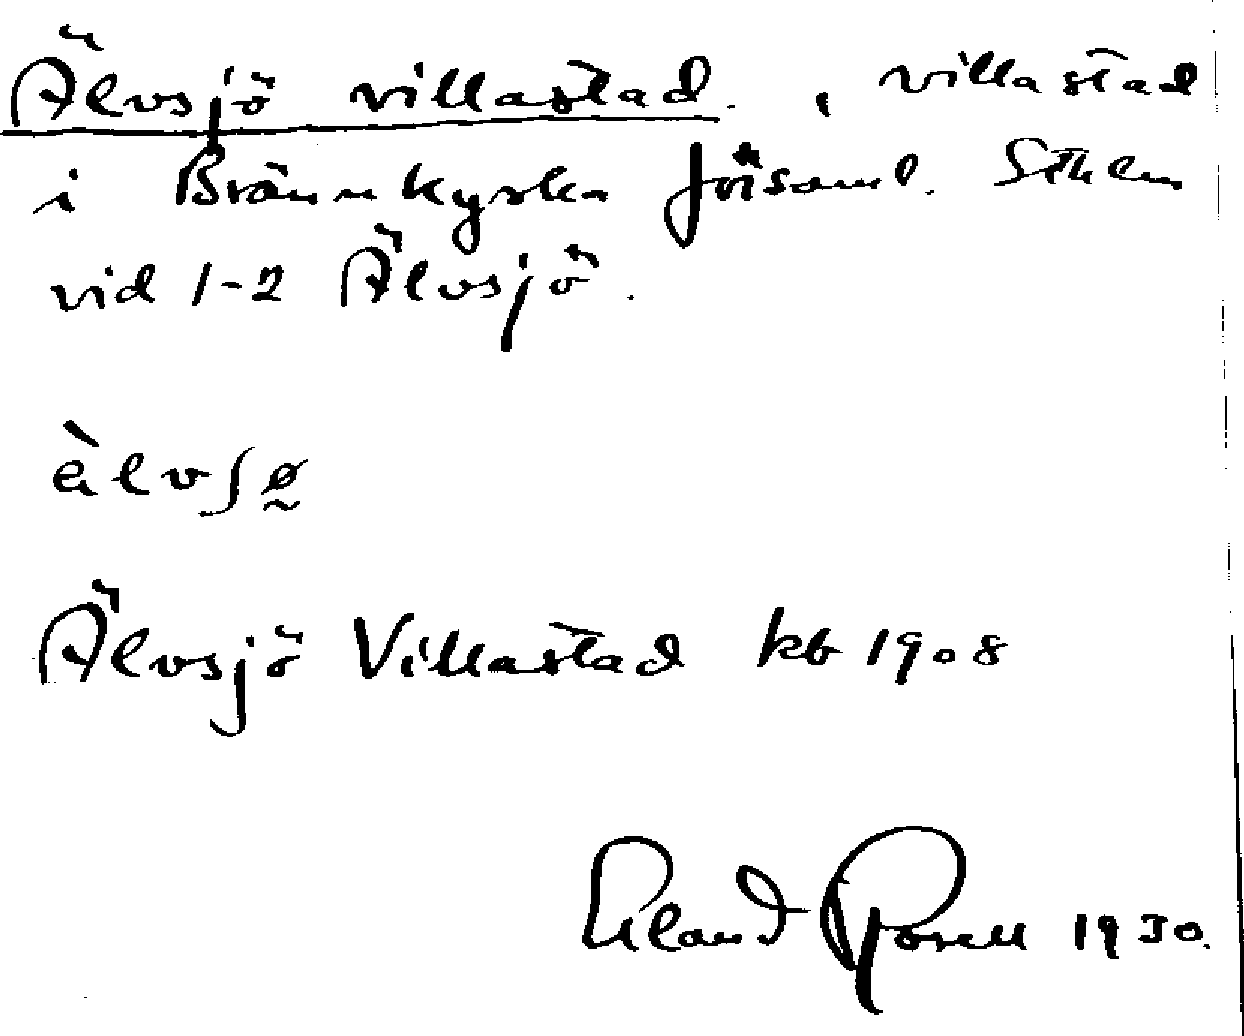 Älvsjö villastad. , villastad
i Brännkyrka församl. Sthlm
vid 1-2 Älvsjö.
Älvsjö Villastad kb 1908
Erland Rosell 1930.